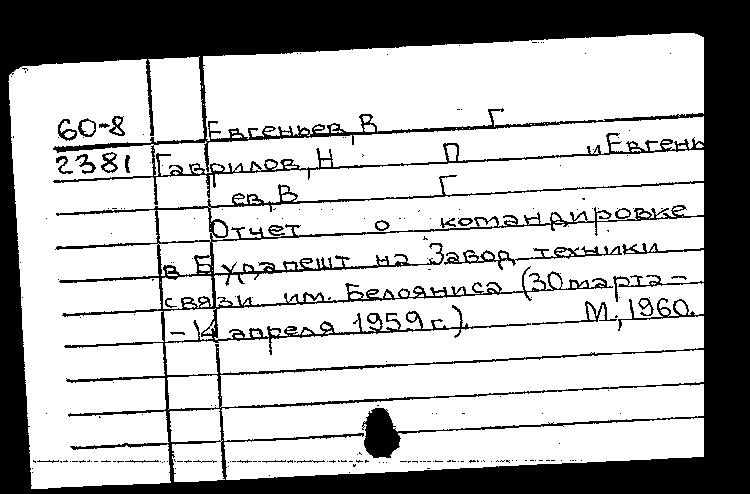 60-8 Евгеньев, В Г
2381 Гаврилов, Н П и Евгень
ев, В Г
Отчет о командировке
в Будапешт на Завод техники
связи им. Белояниса (30 марта -
- 14 апреля 1959 г.). М., 1960.